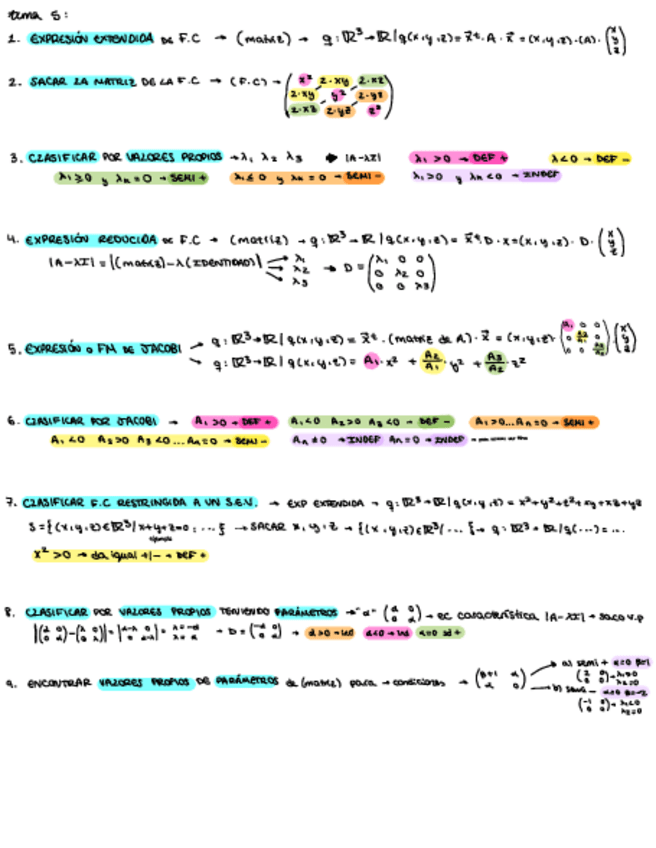 tema 5:
1. EXPRESIÓN EXTENDIDA DE F.C → (matriz) → q: ℝ³→ℝ / q(x,y,z) = x⃗ᵗ·A·x⃗ = (x,y,z)·(A)·(x y z)
2. SACAR LA MATRIZ DE LA F.C → (F.C) → (x² 2·xy 2·xz
2·xy y² 2·yz
2·xz 2·yz z²)
3. CLASIFICAR POR VALORES PROPIOS → λ₁ λ₂ λ₃ → |A-λI| λ₁ >0 → DEF + λ<0 → DEF -
λ₁≥0 y λn=0 → SEMI + λ₁≤0 y λn=0 → SEMI- λ₁>0 y λn<0 → INDEF
4. EXPRESIÓN REDUCIDA DE F.C → (matriz) → q: ℝ³→ℝ / q(x,y,z) = x⃗ᵗ·D·x = (x,y,z)·D·(x y z)
|A-λI| = |(matriz)-λ(IDENTIDAD)| → λ₁ λ₂ λ₃ → D = (λ₁ 0 0
0 λ₂ 0
0 0 λ₃)
5. EXPRESIÓN O FM DE JACOBI → q: ℝ³→ℝ / q(x,y,z) = x⃗ᵗ·(matriz de A)·x⃗ = (x,y,z)·(A₁ 0 0 0 A₂/A₁ 0 0 0 A₃/A₂)(x y z)
→ q: ℝ³→ℝ / q(x,y,z) = A₁·x² + A₂/A₁·y² + A₃/A₂ z²
6. CLASIFICAR POR JACOBI → A₁>0 → DEF + A₁<0 A₂>0 A₃<0 → DEF - A₁>0...An=0 → SEMI +
A₁<0 A₂>0 A₃<0...An=0 → SEMI- An≠0 → INDEF An=0 → INDEF
7. CLASIFICAR F.C RESTRINGIDA A UN S.E.V. → EXP EXTENDIDA → q: ℝ³→ℝ / q(x,y,z) = x²+y²+z²+xy+xz+yz
S={(x,y,z)∈ℝ³/x+y+z=0;...} → SACAR x,y,z → {(x,y,z)∈ℝ³/...} → q: ℝ³→ℝ/q(...)=...
ejemplo
x² >0 → da igual +/- → DEF +
8. CLASIFICAR POR VALORES PROPIOS TENIENDO PARÁMETROS → "α" (α 0 0 α) → ec característica |A-λI| → saco v.p
→ α>0 → ind α<0 → ind α=0 sd+
9. ENCONTRAR VALORES PROPIOS DE PARÁMETROS de (matriz) para → condiciones → (β+1 α
α 0) → a) semi + α=0 β=1
(2 0 0 0) → λ₁>0 λ₂=0
→ b) semi - α=0 β=-2
(-1 0 0 0) → λ₁<0 λ₂=0